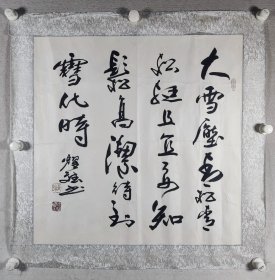 大雪壓青松青
松挺且直要知
松高潔待到
雪化時